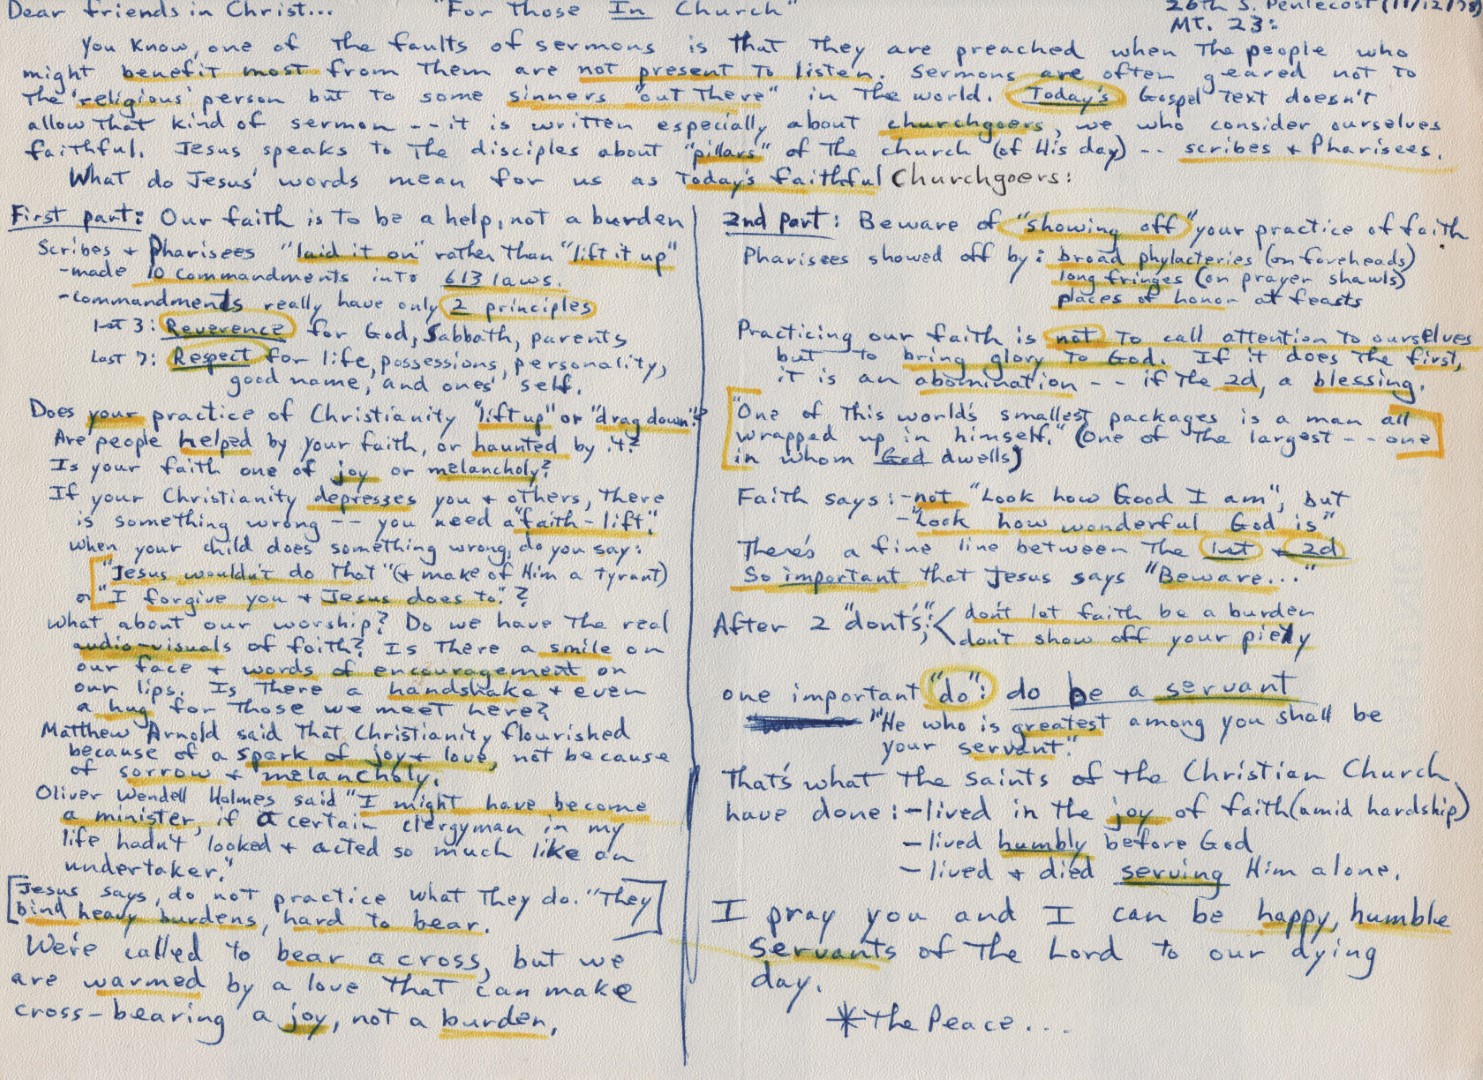 Dear friends in Christ... "For Those In Church" 26th S. Pentecost (11/12/78)
Mt. 23:
You know, one of the faults of sermons is that they are preached when the people who
might benefit most from them are not present to listen. Sermons are often geared not to
the 'religious' person but to some sinners "out there" in the world. Today's Gospel text doesn't
allow that kind of sermon -- it is written especially about churchgoers, we who consider ourselves
faithful. Jesus speaks to the disciples about "pillars" of the church (of His day) -- scribes + Pharisees.
What do Jesus' words mean for us as today's faithful Churchgoers:
First part: Our faith is to be a help, not a burden
Scribes + Pharisees "laid it on" rather than "lift it up"
-made 10 commandments into 613 laws.
-commandments really have only 2 principles
1st 3: Reverence for God, Sabbath, parents
Last 7: Respect for life, possessions, personality,
good name, and ones' self.
Does your practice of Christianity "lift up" or "drag down"?
Are people helped by your faith, or haunted by it?
Is your faith one of joy or melancholy?
If your Christianity depresses you + others, there
is something wrong -- you need a "faith-lift".
When your child does something wrong, do you say:
"Jesus wouldn't do that" (+ make of Him a tyrant)
or "I forgive you + Jesus does to."?
What about our worship? Do we have the real
audio-visuals of faith? Is there a smile on
our face + words of encouragement on
our lips. Is there a handshake + even
a hug for those we meet here?
Matthew Arnold said that Christianity flourished
because of a spark of joy + love, not because
of sorrow + melancholy.
Oliver Wendell Holmes said "I might have become
a minister, if a certain clergyman in my
life hadn't looked + acted so much like an
undertaker."
Jesus says, do not practice what they do. "They
bind heavy burdens, hard to bear.
We're called to bear a cross, but we
are warmed by a love that can make
cross-bearing a joy, not a burden.
2nd Part: Beware of "showing off" your practice of faith
Pharisees showed off by: broad phylacteries (on foreheads)
long fringes (on prayer shawls)
places of honor at feasts
Practicing our faith is not to call attention to ourselves
but to bring glory to God. If it does the first,
it is an abomination -- if the 2d, a blessing.
"One of this world's smallest packages is a man all
wrapped up in himself." (One of the largest -- one
in whom God dwells)
Faith says: -not "Look how Good I am", but
-"Look how wonderful God is"
There's a fine line between the 1st + 2d
So important that Jesus says "Beware..."
After 2 "don'ts": don't let faith be a burden
don't show off your piety
one important "do": do be a servant
"He who is greatest among you shall be
your servant."
That's what the saints of the Christian Church
have done: -lived in the joy of faith (amid hardship)
-lived humbly before God
-lived + died serving Him alone.
I pray you and I can be happy, humble
servants of the Lord to our dying
day.
*The Peace...